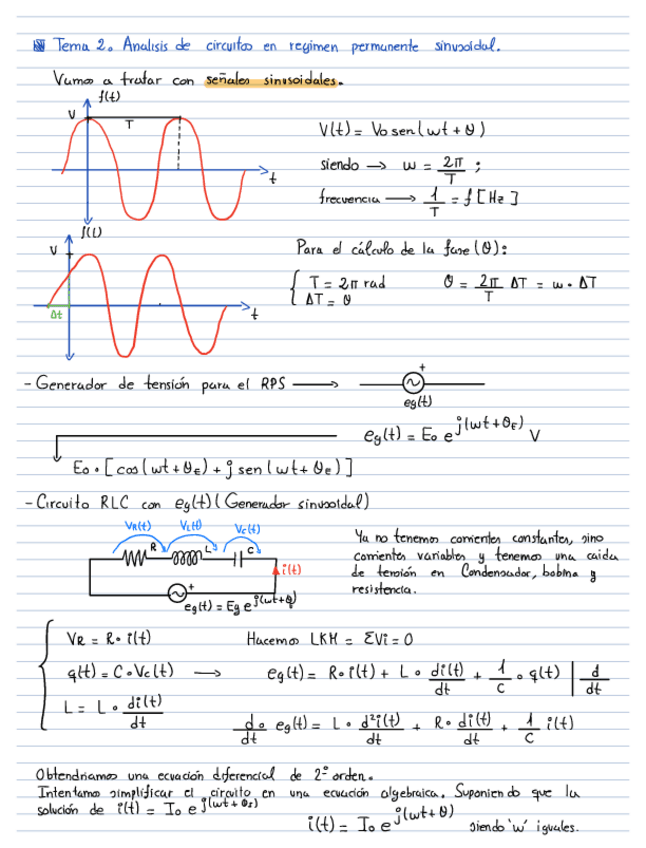 Tema 2. Analisis de circuitos en regimen permanente sinusoidal.
Vamos a tratar con señales sinusoidales.
f(t)
V
T
t
V(t) = Vo sen(wt + θ)
siendo → w = 2π/T ;
frecuencia → 1/T = f [Hz]
f(t)
V
Δt
t
Para el cálculo de la fase (θ):
{ T = 2π rad
ΔT = θ
θ = 2π/T ΔT = w · ΔT
- Generador de tensión para el RPS →
+
eg(t)
eg(t) = Eo e^j(wt+θE) V
Eo · [cos(wt + θE) + j sen(wt + θe)]
- Circuito RLC con eg(t) (Generador sinusoidal)
VR(t) VL(t) Vc(t)
R L C
i(t)
+
eg(t) = Eg e^j(wt+θ)
Ya no tenemos corrientes constantes, sino
corrientes variables y tenemos una caida
de tension en Condensador, bobina y
resistencia.
VR = R · i(t)
q(t) = C · Vc(t) →
L = L · di(t)/dt
Hacemos LKM = ΣVi = 0
eg(t) = R · i(t) + L · di(t)/dt + 1/C · q(t) | d/dt
d·/dt eg(t) = L · d²i(t)/dt + R · di(t)/dt + 1/C i(t)
Obtendriamos una ecuación diferencial de 2º orden.
Intentamos simplificar el circuito en una ecuación algebraica. Suponiendo que la
solución de i(t) = Io e^j(wt + θI)
i(t) = Io e^j(wt + θ) siendo 'w' iguales.